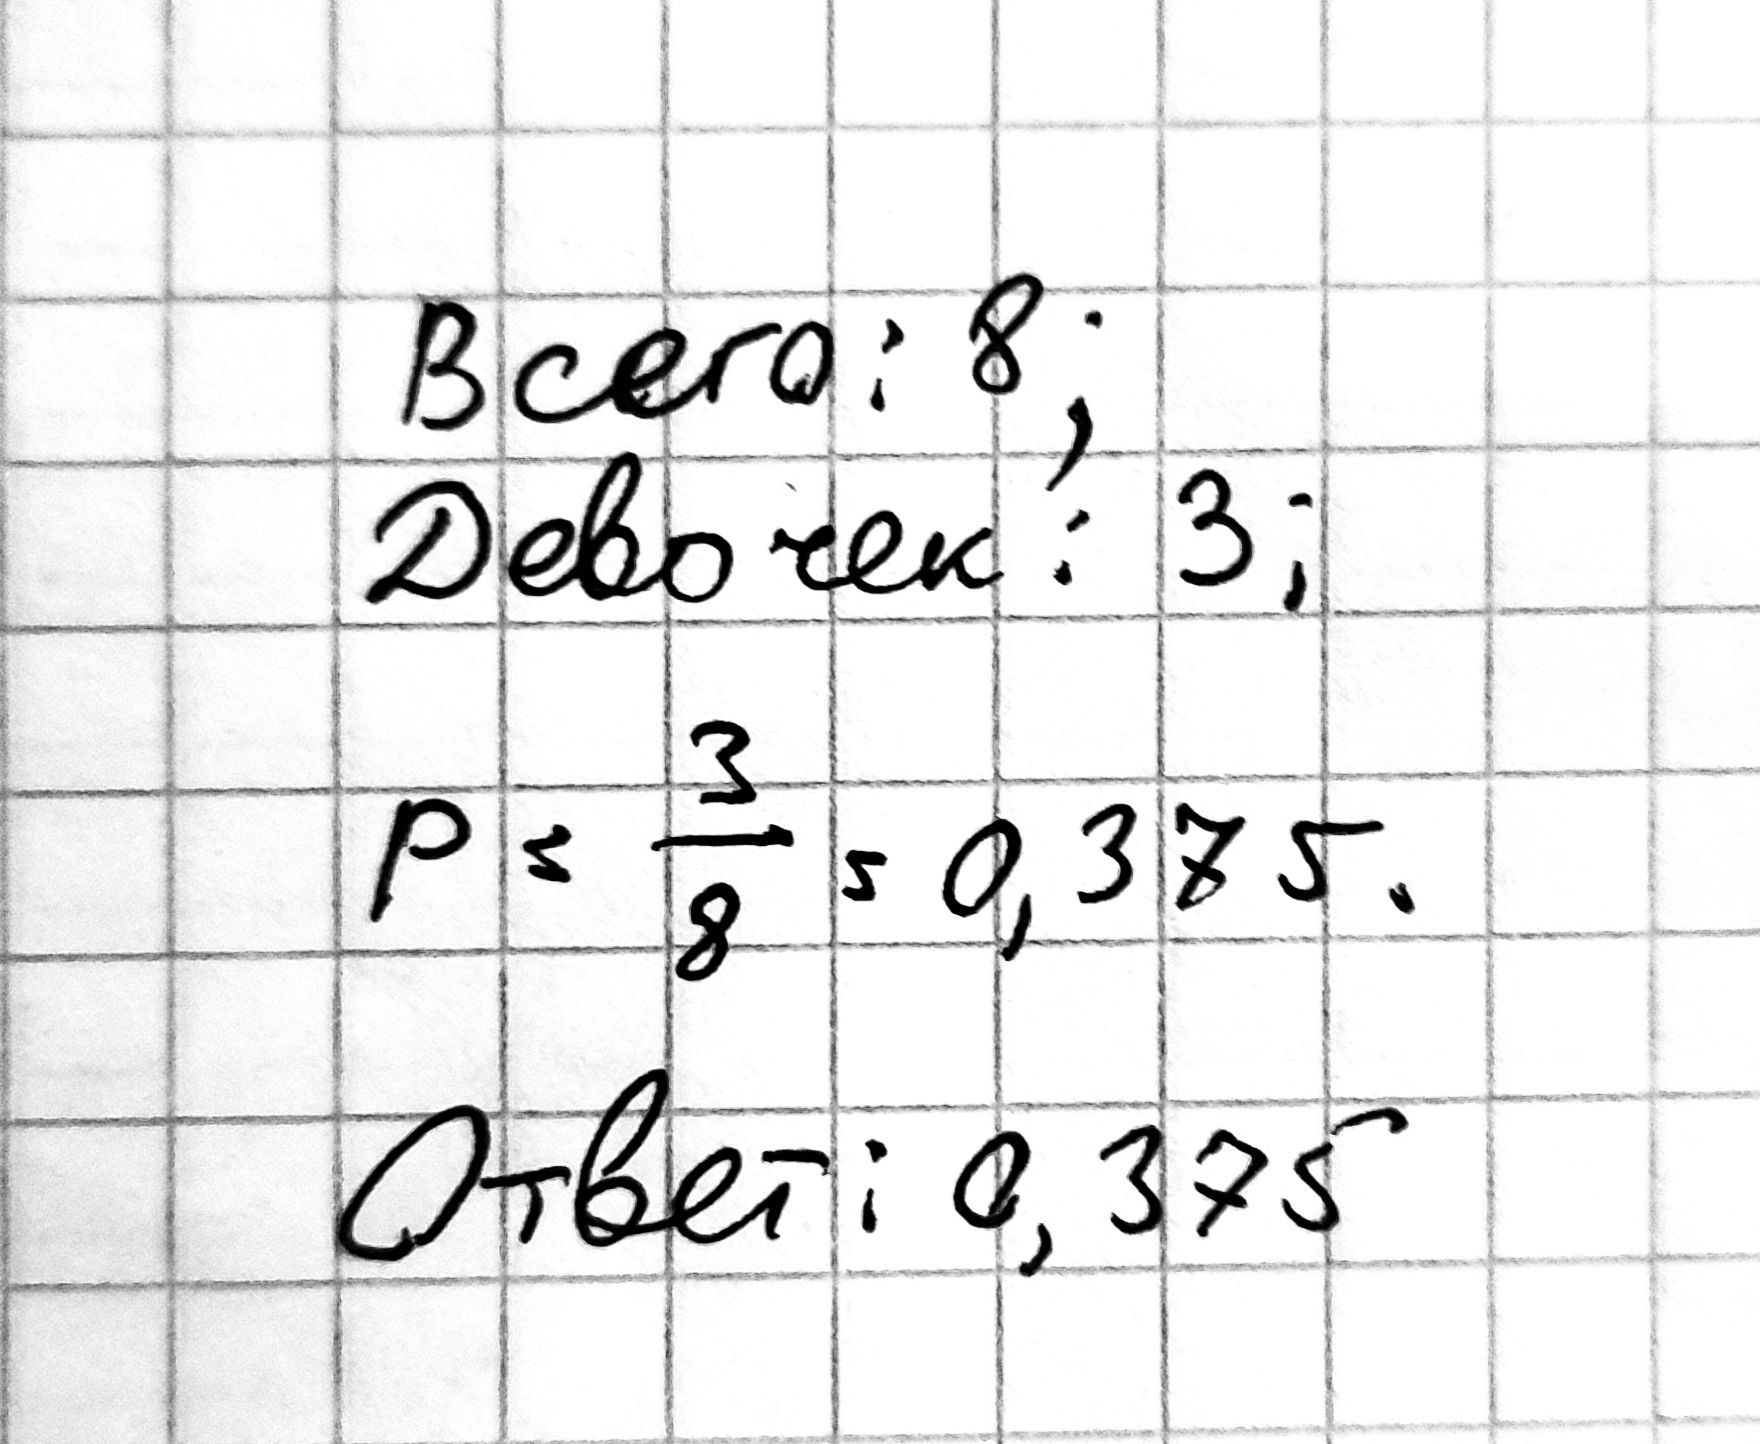 Всего: 8;
Девочек: 3;
P = 3/8 = 0,375.
Ответ: 0,375